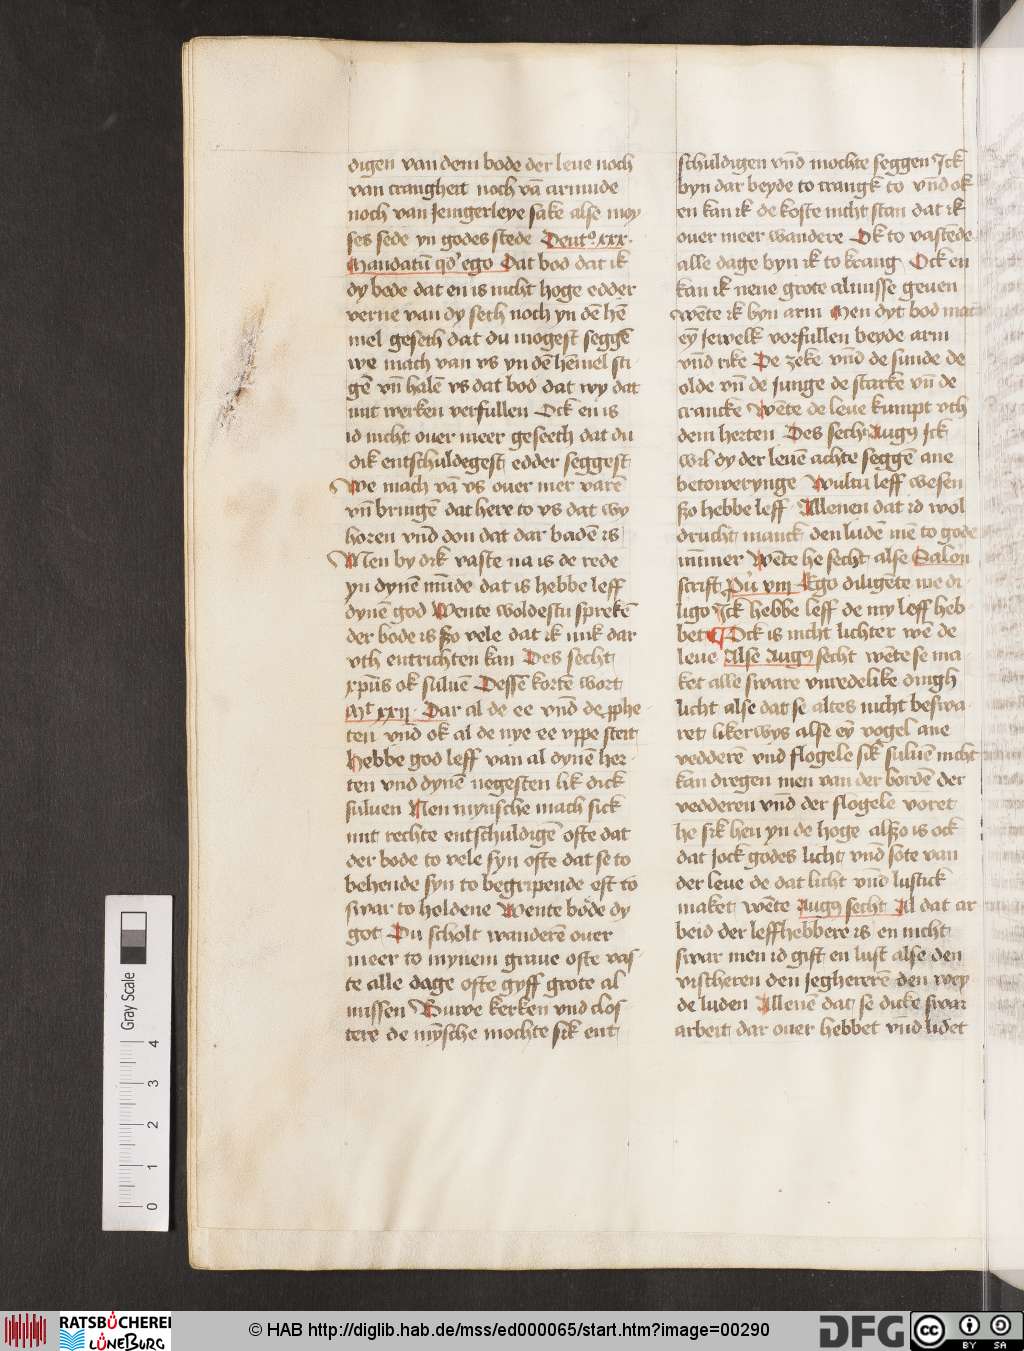 digen van dem bode der leue noch
van crangheit noch vā armude
noch van jenigerleye sake alse moy
ses sede yn godes stede Deutº xxx
Mandatū qđ ego Dat bod dat ik
dy bede dat en is nicht hoge edder
verne van dy seth noch yn dē hē
mel geseth dat du mogest seggē
we mach van vs yn dē hēmel sti
gē vn̄ halē vs dat bod dat wy dat
mit werken verfullen Ock en is
id nicht ouer meer geseeth dat du
dik entschuldegest edder seggest
We mach vā vs ouer mer varē
vn̄ bringē dat here to vs dat wy
horen vnd don dat dar badē is
Men by dik vaste na is de rede
yn dynē mūde dat is hebbe leff
dynē god Wente woldestu sprekē
der bode is szo vele dat ik mik dar
vth entrichten kan Des secht
xpūs ok suluē Dessē kortē wort
Mt xxij Dar al de ee vnd de pphe
ten vnd ok al de nye ee vppe steit
Hebbe god leff van al dynē her
ten vnd dynē negesten lik dick
suluen Nen mynsche mach sick
mit rechte entschuldigē ofte dat
der bode to vele syn ofte dat se to
behende syn to begripende eft to
swar to holdene Wente bode dy
got Du scholt wanderē ouer
meer to mynem graue ofte vas
te alle dage ofte gyff grote al
missen Buwe kerken vnd clos
tere de mȳsche mochte sik ent
schuldigen vnd mochte seggen Ick
byn dar beyde to crangk to vnd ok
en kan ik de koste nicht stan dat ik
ouer meer wandere Ok to vastede
alle dage byn ik to krang Ock en
kan ik nene grote almisse geuen
wēte ik byn arm Men dyt bod mach
eȳ jewelk vorfullen beyde arm
vnd rike De zeke vnd de sunde de
olde vn̄ de junge de starke vn̄ de
crancke Wēte de leue kumpt vth
dem herten Des sech Augꝰ Ick
wil dy der leuē achte seggē ane
betowerynge Wultu leff wesen
szo hebbe leff Allenen dat id wol
drucht manck den ludē me to gode
ūmer Wēte he secht alse Salon
scrift viii Ego diligēte me di
ligo Ick hebbe leff de my leff heb
bet Ock is nicht lichter wē de
leue Alse Augꝰ secht wēte se ma
ket alle sware vnredelike dingh
licht alse dat se altes nicht beswa
ret likerwys alse eȳ vogel ane
vedderē vnd flogele sik suluē nicht
kan dregen men van der bordē der
vedderen vnd der flogele voret
he sik hen yn de hoge alszo is ock
dat jock godes licht vnd sote van
der leue de dat licht vnd lustick
maket wēte Augꝰ secht Al dat ar
beid der leffhebbere is en nicht
swar men id gift en lust alse den
vischeren den jeghererē den wey
de luden Allenē dat se dicke swar
arbeit dar ouer hebbet vnd lidet
Gray Scale
4
3
2
1
0
RATSBÜCHEREI
LÜNEBURG
© HAB http://diglib.hab.de/mss/ed000065/start.htm?image=00290
DFG
cc
BY SA